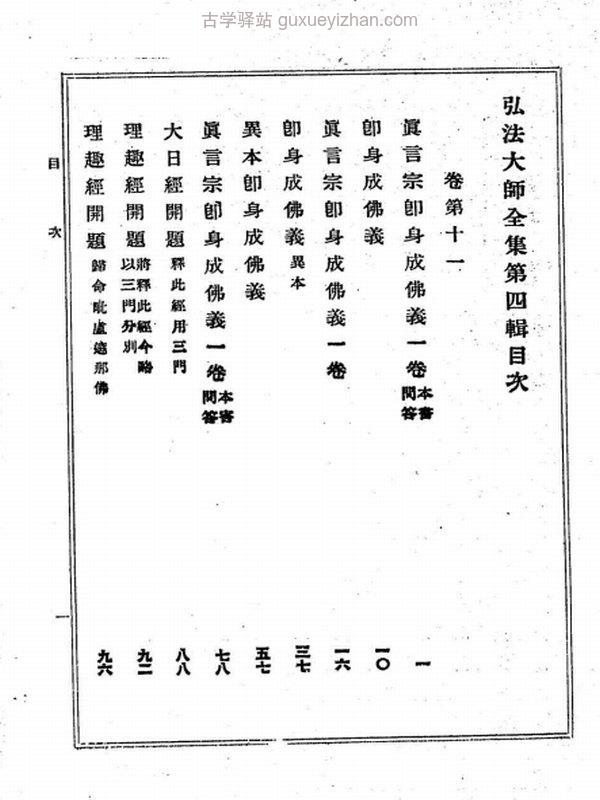 古学驿站 guxueyizhan.com
弘法大師全集第四輯目次
卷第十一
眞言宗卽身成佛義一卷 本書問答 一
卽身成佛義 一〇
眞言宗卽身成佛義一卷 一六
卽身成佛義 異本 三七
異本卽身成佛義 五七
眞言宗卽身成佛義一卷 本書問答 七八
大日經開題 釋此經用三門 八八
理趣經開題 將釋此經今略以三門分別 九二
理趣經開題 歸命毗盧遮那佛 九六
目次
一